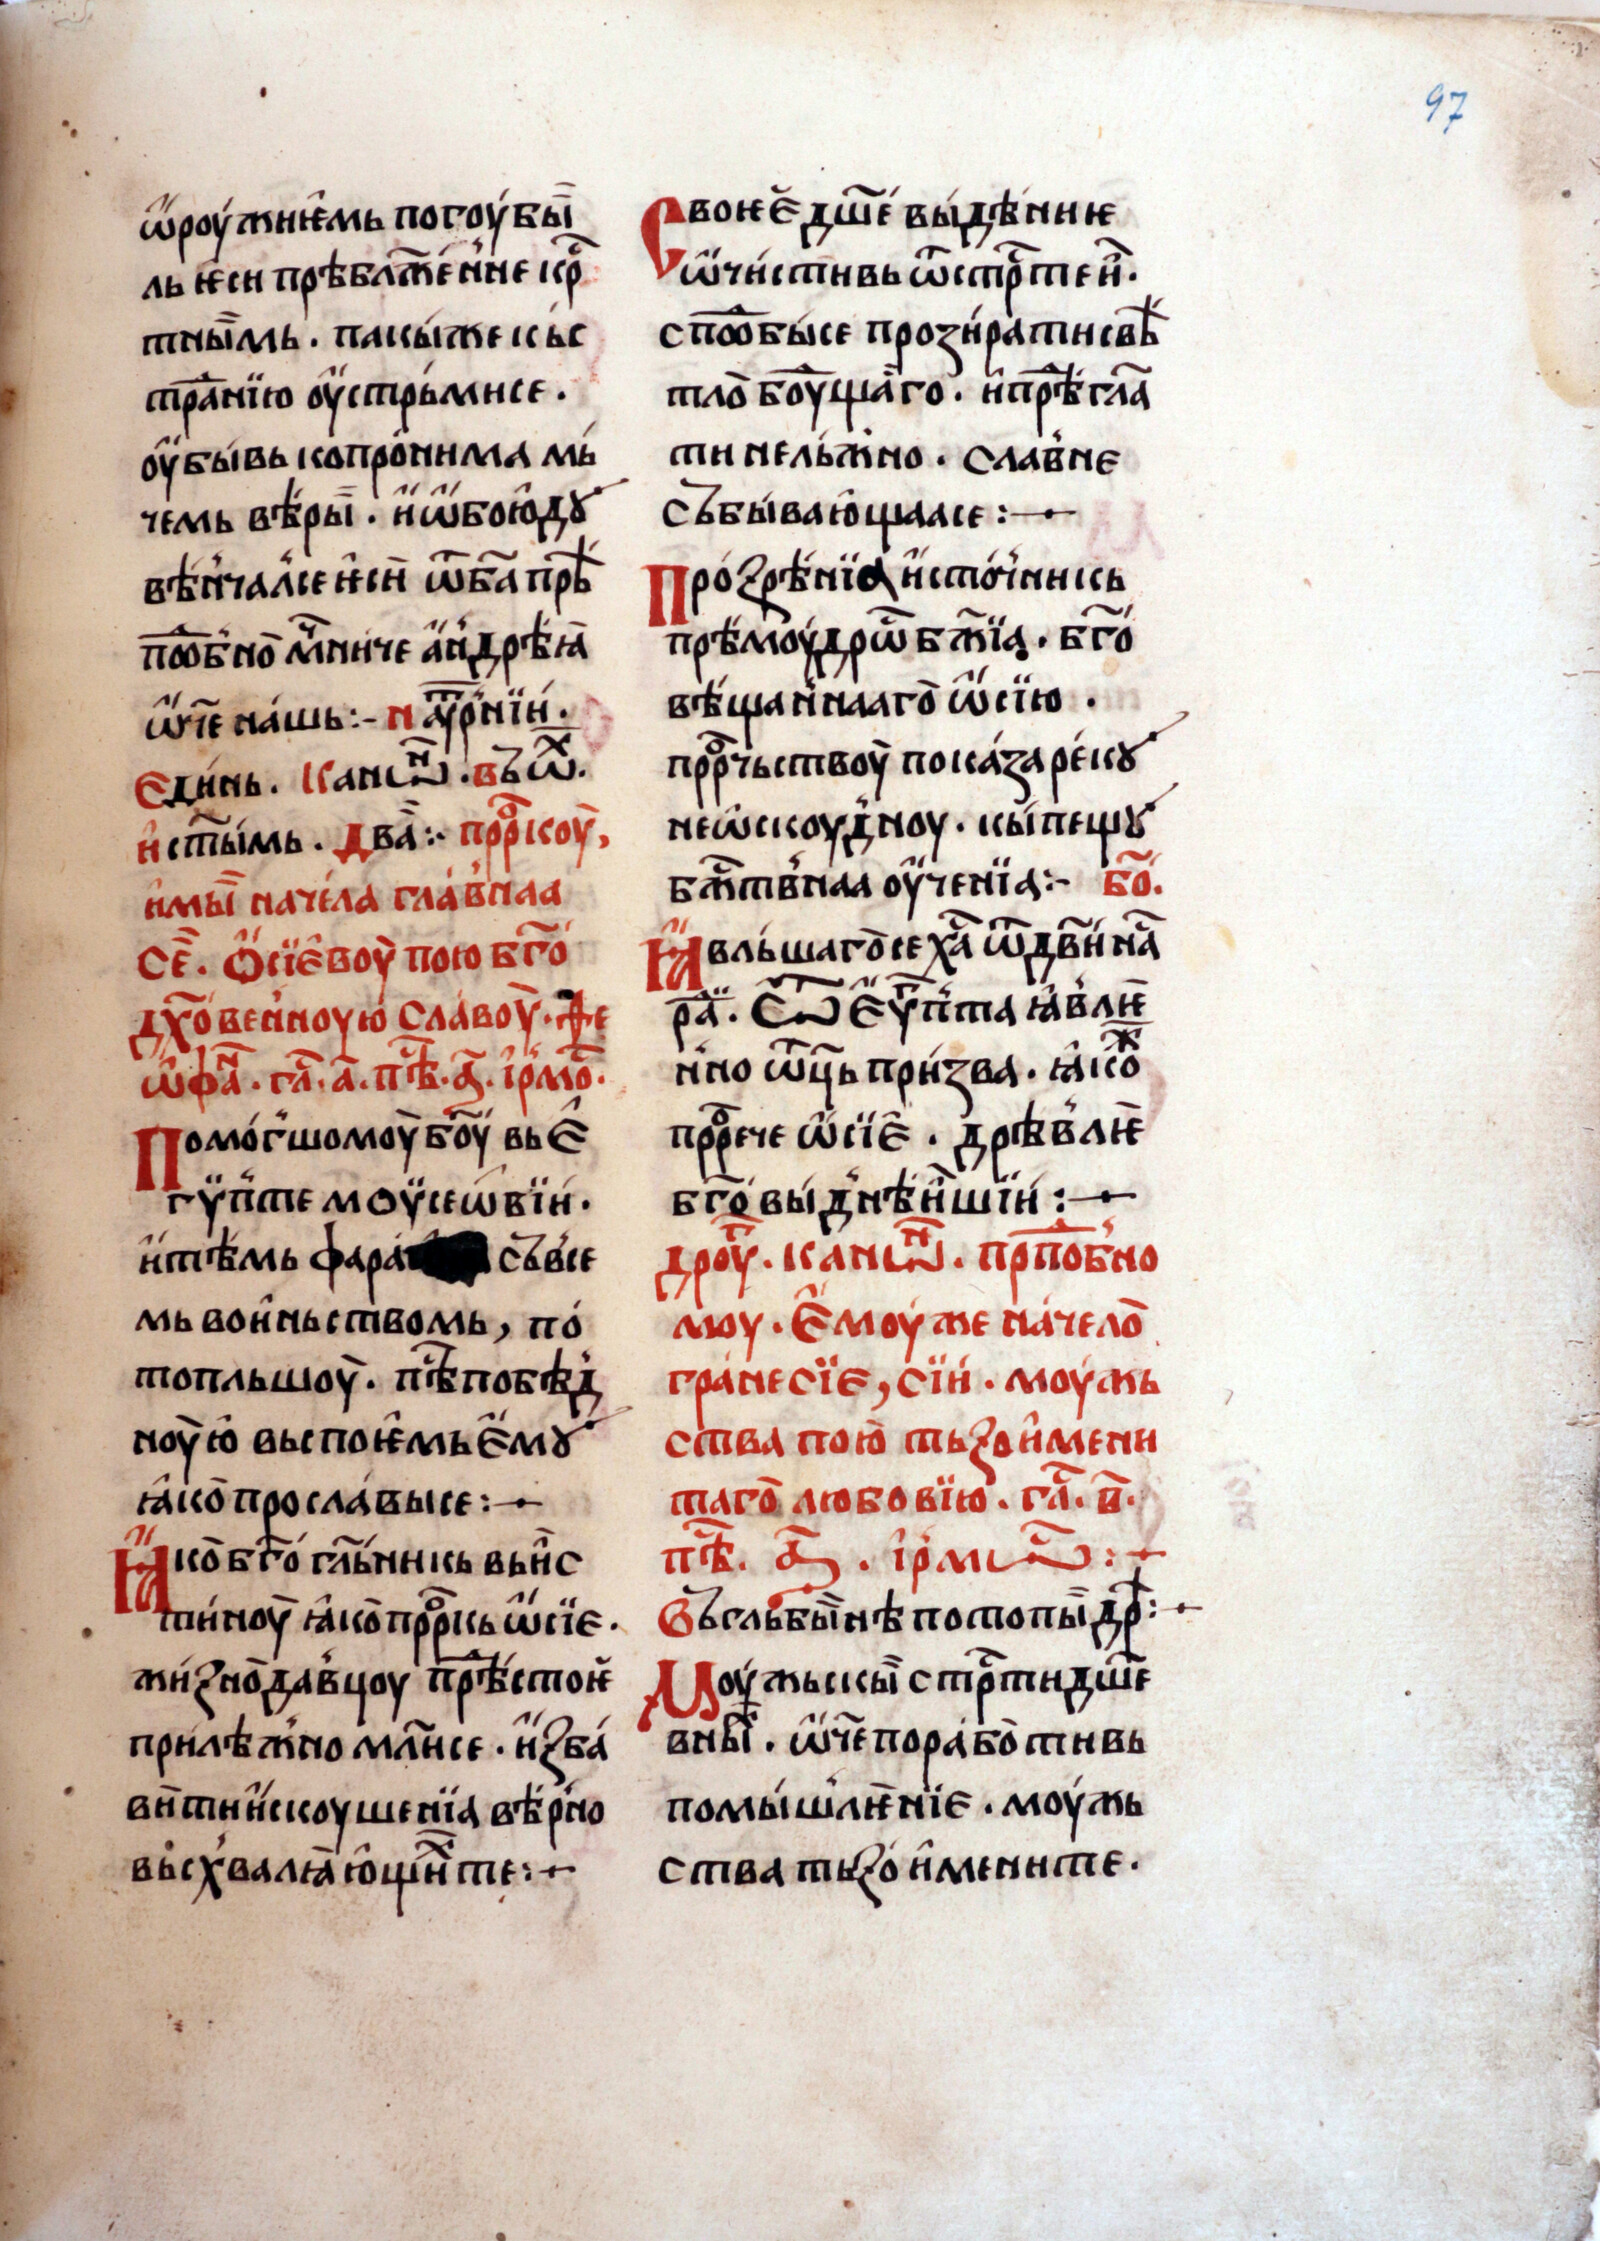 97
ѡ҆роу́жиѥ҆мь погоу́бы̏
ль ѥ҆си прѣбл҃же́нне крⷭ҇
тны̏мь. пакы́же кь с
тра́нїю оу҆стрьми се.
оу҆бы́вь копро́нима мь́
чемь вѣ́ры̏. и҆ ѡ҆бою́дꙋ
вѣнча́лсе ѥ҆си̏ ѿ б҃а прⷣѣ
поⷣбно мⷱ҇ниче а҆ндрѣ́ꙗ
ѡ҆ч҃е на́шь:- на ѹ҆трⷩ҇їи.
Еди́нь. Канѡⷩ҇. въ ѡⷯ.
и҆ ст҃ы́мь. два̏:- прⷪ҇ркоу̏,
и҆мы̏ наче́ла гла́внаа
се̏. Ѻ҆сїе́воу̏ пою бг҃о́
дх҃о́веннꙋю славоу̏. Ѳе
ѡ҆фаⷩ҇. гла́. а҃. пѣⷭ҇. а҃. і҆рмо́.
Помо́гшомоу̏ б҃оу вь е҆
гѵ́пте моѵсеѡ҆вїи́.
и҆ тѣ́мь фара съ́ все
мь вои́ньствомь, по́
топльшоу̏. пѣⷭ҇ побѣд
ноу̏ю вьспоѥ́мь е҆мꙋ
ꙗ҆ко̏ просла́вы се:—
Ꙗ҆ко̏ бг҃о́ гл҃ьникь вь и҆с
ти́ноу̏ ꙗ҆ко̏ прⷪ҇ркь ѡ҆сїе.
жи́зно̏да́вцоу прⷣѣстоѥ
прилѣ́жно мл҃и се. и҆зба́
ви́ти и҆скоуше́нїа вѣ́рно
вьсх́валꙗ́ющиⷯ те:—
Своѥ е҆ дш҃е́ вы́дѣ́ниѥ
ѡ҆чи́стивь ѿ стрⷭ҇те́и.
спⷪ҇добы се прозира́ти свѣ
тло боу́ꙋщаго. и҆ прⷣѣгла
ти нель́жно. сла́вне
съ́быва́ющаа се:—
Про́зрѣ́нїа и҆сто́чникь
прѣмоу́дрѡⷭ҇ б҃жїа. бг҃о́
вѣ́щаннааго̏ ѡ҆сїю.
прⷪ҇рчьствоу̏ пока́за рѣ́кꙋ
неѡ҆скоу́дноу. кы́пещꙋ
бжⷭ҇твнаа оу҆че́нїа:- б҃о.
Ꙗ҆вль́шаго̏ се х҃а ѿ дв҃и на
ра̏. Ѿ е҆гѵ́пта ꙗ҆влѥ
нно ѿць́ призва. ꙗ҆коⷤ
прⷪ҇рече ѡ҆сїе. дрѣ́влѥ
бг҃о́вы́днѣ́ишїи:—
Дроу́г. канѡⷩ҇. прⷣпобно
моу. Е҆моу́же на́чело̏
гра́несїе, сїи. моу́жь
ства пою̏ тьзои́мени
таго̏ любовїю. гла́. и҃.
пѣⷭ҇. а҃. і҆рмѡ:—
Въсльбы̏нѣ потопы̏ дрⷡѣ:—
Моу́жьскы̏ стрⷭ҇ти дш҃е
вны̏ⷨ. ѡ҆ч҃е пора́бо̏тивь
помы́шлѥ́нїе. моу́жь
ства тьзо́и҆мените.